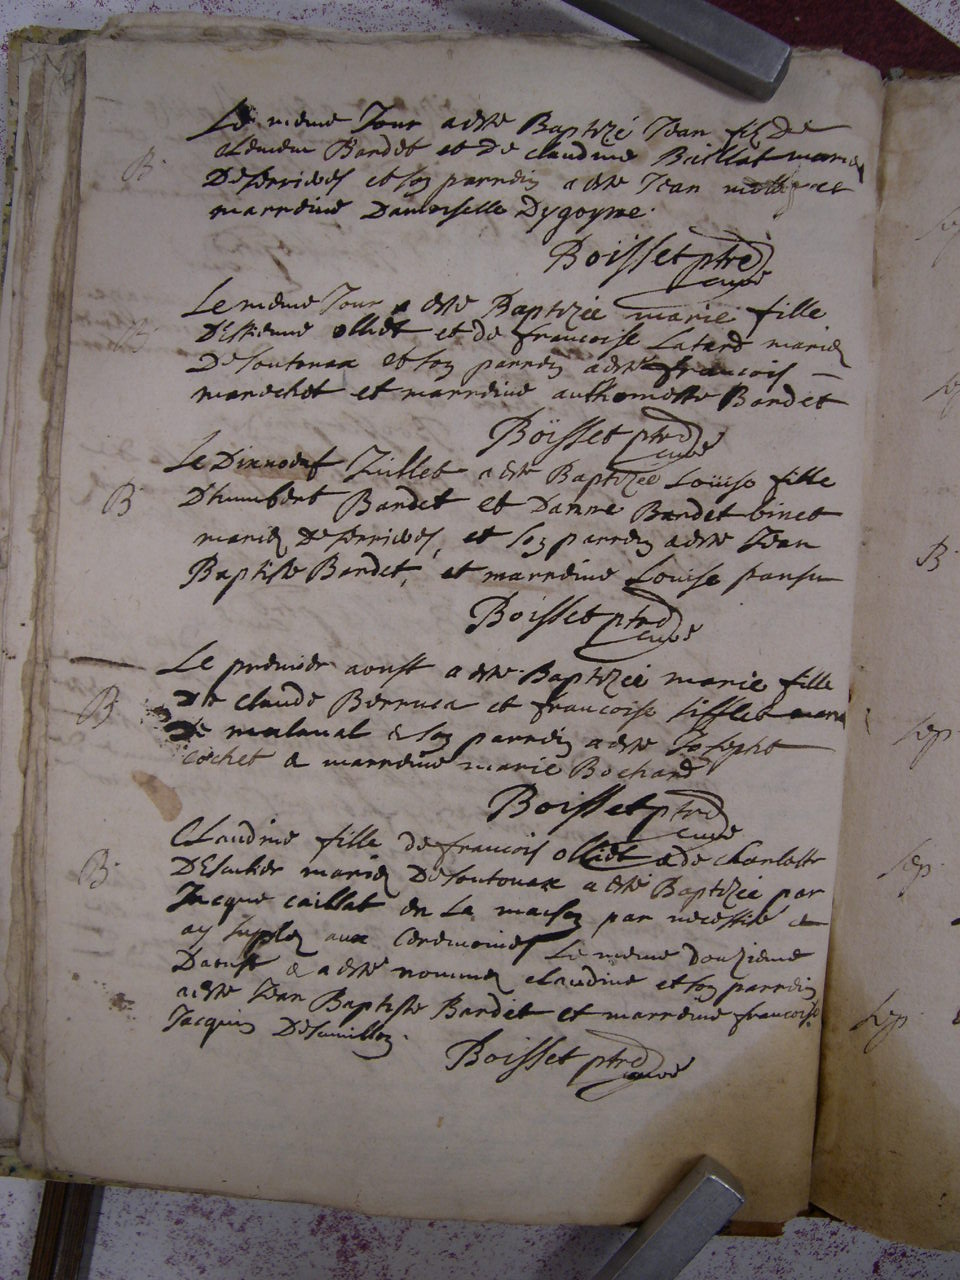 Le meme Jour a este Baptizé Jean fils De
Clement Bardet et De claudine Baillat mariez
De serrieres et son parrein a este Jean et
marreine Damoiselle Dygoyne.
B
Boisset ptre
curé
Le meme Jour a este Baptizée marie fille
D'Estienne olliet et de francoise Latard mariez
De soutonax et son parrein a este francois
marechet et marreine anthoinette Bardet
B
Boisset ptre
curé
Le Dixnoeuf Juillet a este Baptizée Loüise fille
D'humbert Bardet et D'anne Bardet binet
mariez De serrieres, et son parrein a este Jean
Baptiste Bardet, et marreine Louise pansu
B
Boisset ptre
curé
Le premier aoust a este Baptizée marie fille
De claude Berruca et francoise sifflet
De malaval & son parrein a este Joseph
cochet & marreine marie Bochard
B
Boisset ptre
curé
Claudine fille de francois olliet & de charlotte
mariez De soutonax a esté Baptizée par
Jacque caillat en La maison par necessité et
ay suplez aux Ceremonies Le meme douzieme
Daoust & a esté nommez claudine et son parrein
a este Jean Baptiste Bardet et marreine francoise
Jacquin
B
Boisset ptre
curé
B
sep
sep
sep